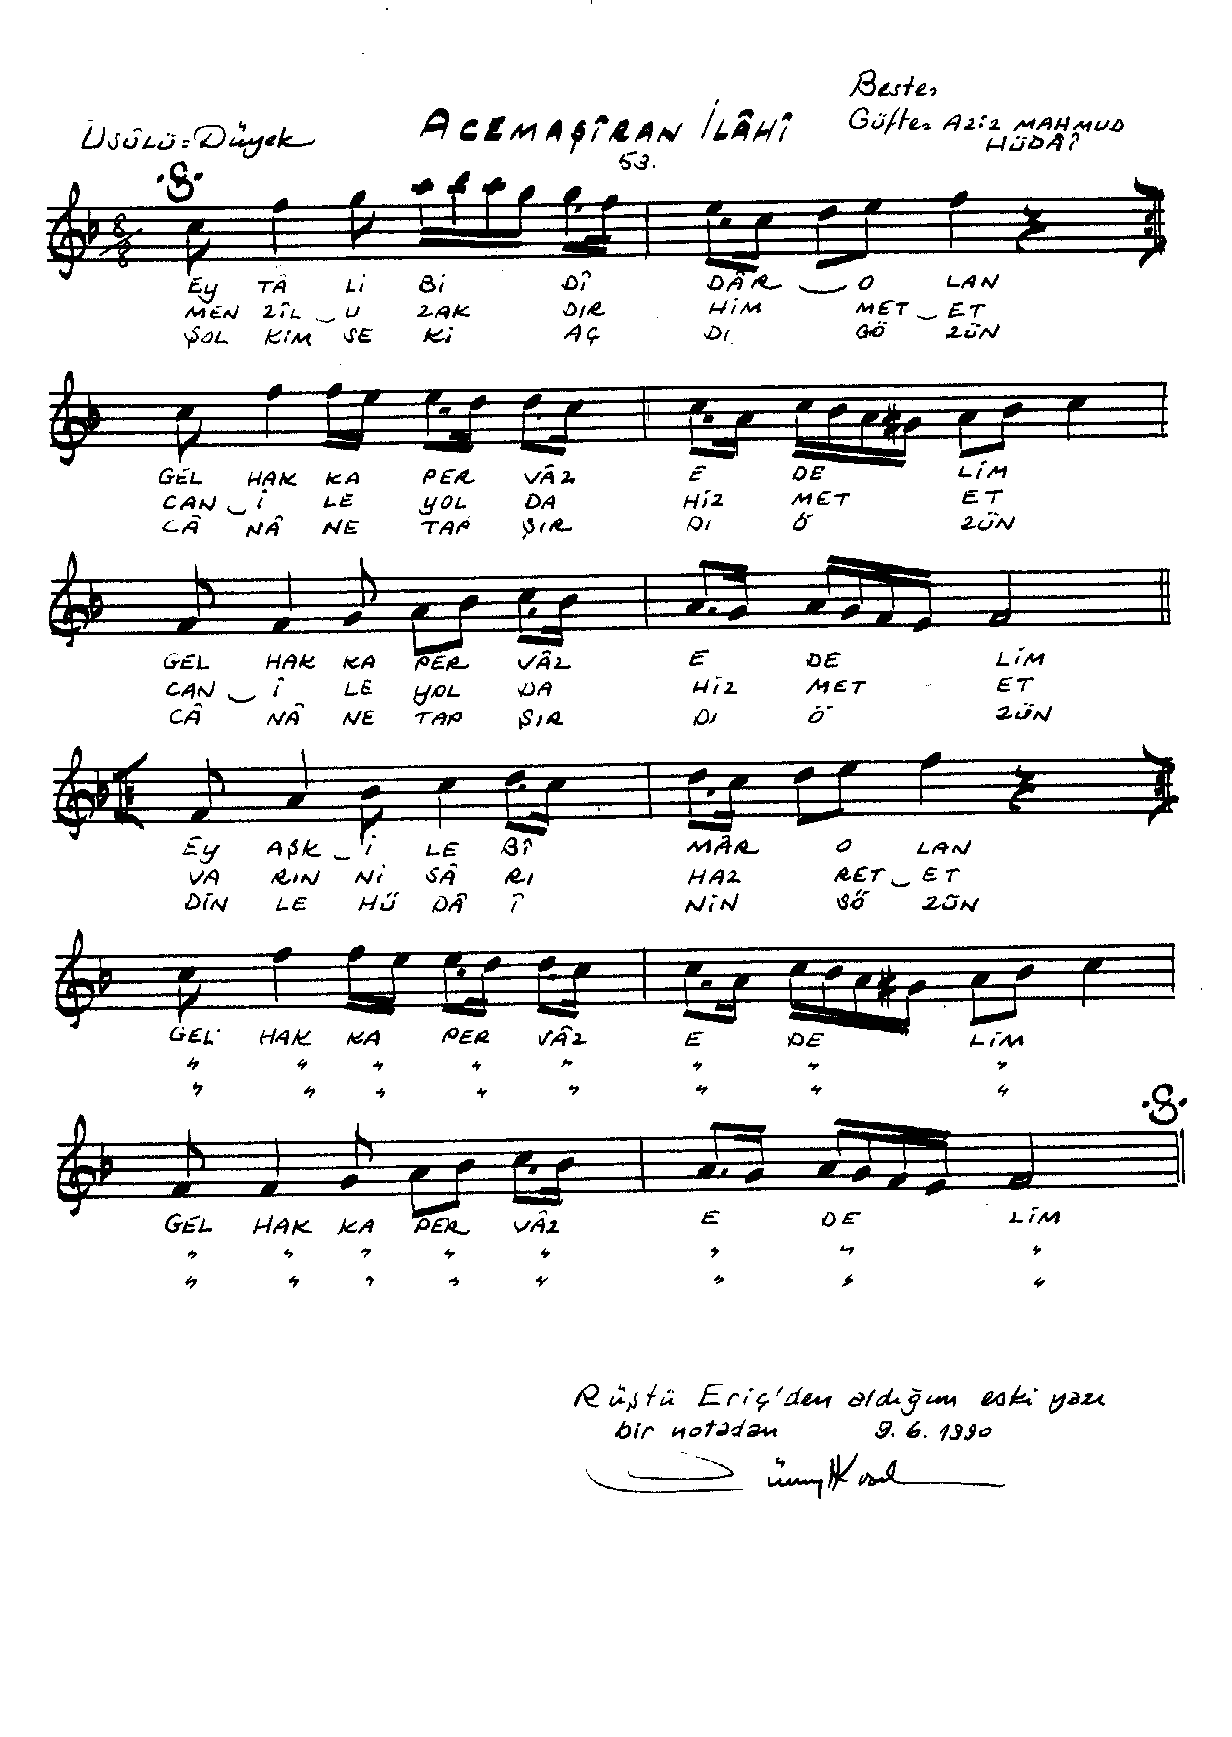 Beste:
Usûlü: Düyek ACEMAŞÎRAN İLÂHÎ Güfte: AZİZ MAHMUD
HÜDÂÎ
53.
8/8
EY TÂ Lİ Bİ DÎ DÂR‿O LAN
MEN ZİL‿U ZAK DIR HİM MET‿ET
ŞOL KİM SE Kİ AÇ DI GÖ ZÜN
GEL HAK KA PER VÂZ E DE LİM
CAN‿İ LE YOL DA HİZ MET ET
CÂ NÂ NE TAP ŞIR DI Ö ZÜN
GEL HAK KA PER VÂZ E DE LİM
CAN‿İ LE YOL DA HİZ MET ET
CÂ NÂ NE TAP ŞIR DI Ö ZÜN
EY AŞK‿İ LE BÎ MÂR O LAN
VA RIN Nİ SÂ RI HAZ RET‿ET
DİN LE HÜ DÂ Î NİN SÖ ZÜN
GEL HAK KA PER VÂZ E DE LİM
" " " " " " " "
" " " " " " " "
GEL HAK KA PER VÂZ E DE LİM
" " " " " " " "
" " " " " " " "
Rüştü Eriç'den aldığım eski yazı
bir notadan 9.6.1990